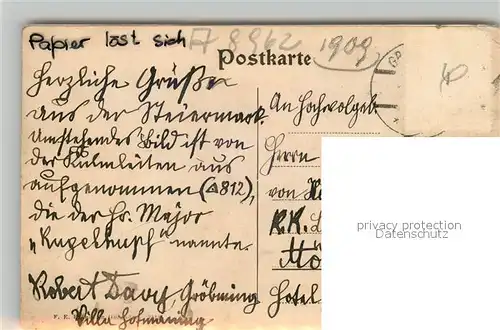 Papier löst sich
A 8962 1909
Postkarte
Herzliche Grüße
aus der Steiermark.
Umstehendes Bild ist von
der Kulmleiten aus
aufgenommen (△812),
die der Hr. Major
„Kugelkupf“ nannte.
Robert Davy, Gröbming
Villa Hofmaning
An Hochwolgeb
Herrn
von
K.K.
Hotel
privacy protection
Datenschutz